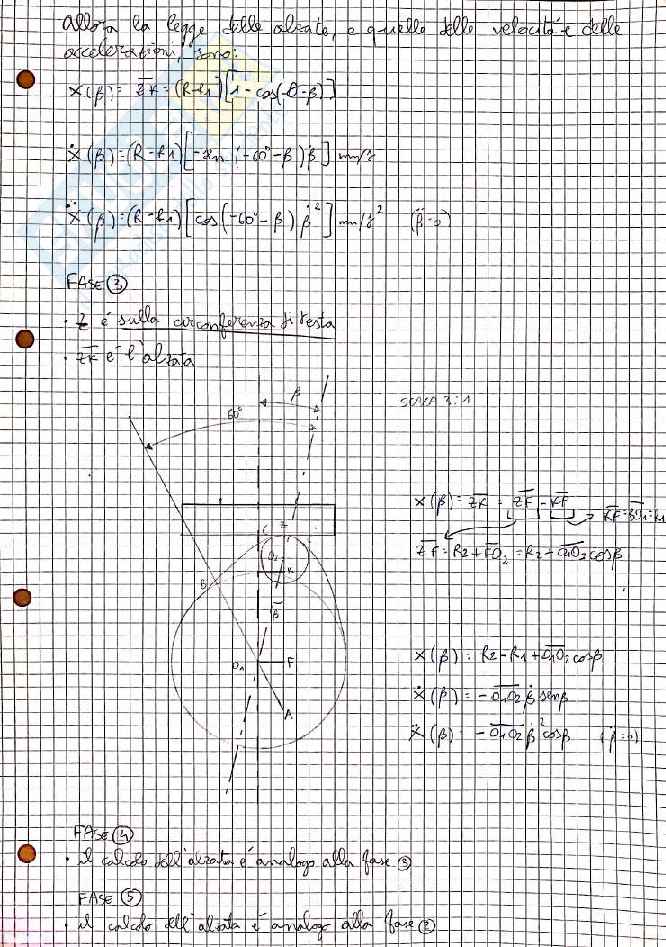 allora la legge delle alzate, e quelle delle velocità e delle
accelerazioni, sono:
x(β) = ZK = (R-R1)[1 - cos(-θ-β)]
ẋ(β) = (R-R1)[-sen(-60°-β)β̇] mm/s
ẍ(β) = (R-R1)[cos(-60°-β)β̇²] mm/s² (β̈=0)
FASE ③
· Z è sulla circonferenza di testa
· ZK è l'alzata
β
60°
scala 2:1
x(β) = ZK = ZF - KF
KF =
ZF = R2 + FO2 = R2 + O1O2 cosβ
C
Z
O2
K
B
β
O1
F
A
x(β) = R2 - R1 + O1O2 cosβ
ẋ(β) = -O1O2 β̇ senβ
ẍ(β) = -O1O2 β̇² cosβ (β̈=0)
FASE ④
· il calcolo dell'alzata è analogo alla fase ③
FASE ⑤
· il calcolo dell'alzata è analogo alla fase ②